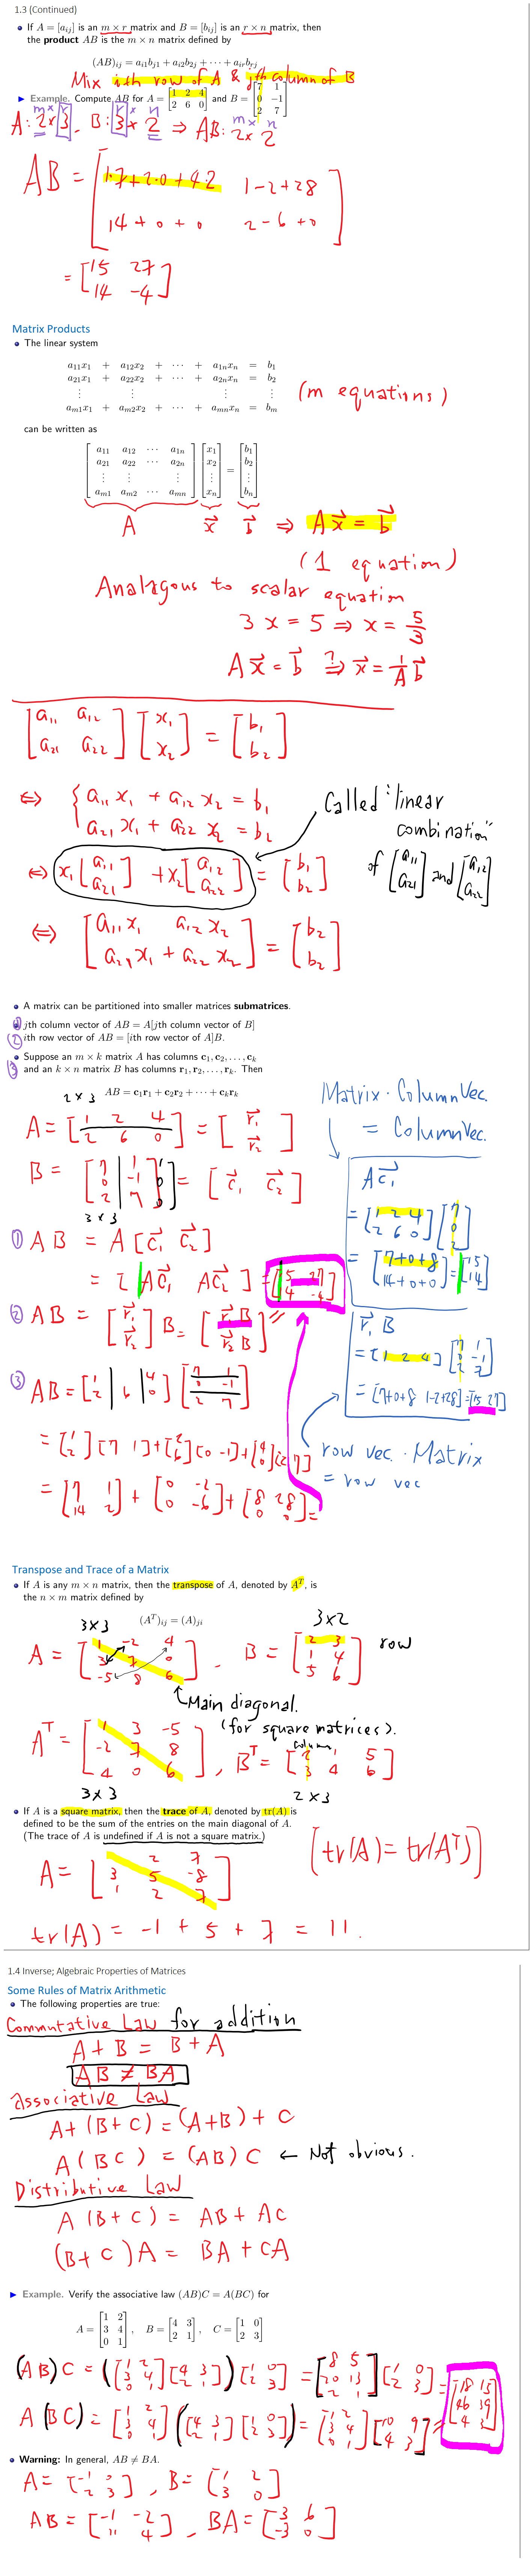 1.3 (Continued)
If A = [a_ij] is an m × r matrix and B = [b_ij] is an r × n matrix, then
the product AB is the m × n matrix defined by
(AB)_ij = a_i1 b_1j + a_i2 b_2j + ··· + a_ir b_rj
Mix ith row of A & jth column of B
Example. Compute AB for A = [1 2 4; 2 6 0] and B = [7 1; 0 -1; 2 7]
m × r r × n m × n
A: 2 × 3, B: 3 × 2 ⇒ AB: 2 × 2
AB = [1·7+2·0+4·2 1-2+28
14+0+0 2-6+0]
= [15 27
14 -4]
Matrix Products
The linear system
a11x1 + a12x2 + ··· + a1nxn = b1
a21x1 + a22x2 + ··· + a2nxn = b2
⋮ ⋮ ⋮ ⋮
am1x1 + am2x2 + ··· + amnxn = bm
(m equations)
can be written as
[a11 a12 ··· a1n] [x1] [b1]
[a21 a22 ··· a2n] [x2] = [b2]
[⋮ ⋮ ⋮] [⋮] [⋮]
[am1 am2 ··· amn] [xn] [bn]
A x⃗ b⃗ ⇒ Ax⃗ = b⃗
(1 equation)
Analagous to scalar equation
3x = 5 ⇒ x = 5/3
Ax⃗ = b⃗ ?⇒ x⃗ = 1/A b⃗
[a11 a12; a21 a22] [x1; x2] = [b1; b2]
⇔ { a11 x1 + a12 x2 = b1
a21 x1 + a22 x2 = b2
Called "linear
combination"
of [a11; a21] and [a12; a22]
⇔ x1 [a11; a21] + x2 [a12; a22] = [b1; b2]
⇔ [a11 x1 a12 x2
a21 x1 + a22 x2] = [b2; b2]
A matrix can be partitioned into smaller matrices submatrices.
① jth column vector of AB = A[jth column vector of B]
② ith row vector of AB = [ith row vector of A]B.
③ Suppose an m × k matrix A has columns c1, c2, ..., ck
and an k × n matrix B has columns r1, r2, ..., rk. Then
AB = c1r1 + c2r2 + ··· + ckrk
2 × 3
A = [1 2 4; 2 6 0] = [r⃗1; r⃗2]
B = [7 1; 0 -1; 2 7] = [c⃗1 c⃗2]
3 × 3
① AB = A[c⃗1 c⃗2]
= [Ac⃗1 Ac⃗2] = [15 27; 14 -4]
② AB = [r⃗1; r⃗2] B = [r⃗1B; r⃗2B]
③ AB = [1 2 4; 2 6 0] [7 1; 0 -1; 2 7]
= [1; 2][7 1] + [2; 6][0 -1] + [4; 0][2 7]
= [7 1; 14 2] + [0 -2; 0 -6] + [8 28; 0 0] =
Matrix · Column Vec.
= Column Vec.
Ac⃗1
= [1 2 4; 2 6 0] [7; 0; 2]
= [7+0+8; 14+0+0] = [15; 14]
r⃗1 B
= [1 2 4] [7 1; 0 -1; 2 7]
= [7+0+8 1-2+28] = [15 27]
row vec. · Matrix
= row vec
Transpose and Trace of a Matrix
If A is any m × n matrix, then the transpose of A, denoted by A^T, is
the n × m matrix defined by
(A^T)_ij = (A)_ji
3 × 3 3 × 2
A = [1 -2 4; 3 7 0; -5 8 6], B = [2 3; 1 4; 5 6] row
Main diagonal.
(for square matrices).
A^T = [1 3 -5; -2 7 8; 4 0 6], B^T = [2 1 5; 3 4 6]
column
3 × 3 2 × 3
If A is a square matrix, then the trace of A, denoted by tr(A) is
defined to be the sum of the entries on the main diagonal of A.
(The trace of A is undefined if A is not a square matrix.)
(tr(A) = tr(A^T))
A = [2 7; 3 5 -8; 1 2 7]
tr(A) = -1 + 5 + 7 = 11.
1.4 Inverse; Algebraic Properties of Matrices
Some Rules of Matrix Arithmetic
The following properties are true:
Commutative Law for addition
A + B = B + A
AB ≠ BA
Associative Law
A + (B + C) = (A + B) + C
A(BC) = (AB)C ← Not obvious.
Distributive Law
A(B + C) = AB + AC
(B + C)A = BA + CA
Example. Verify the associative law (AB)C = A(BC) for
A = [1 2; 3 4; 0 1], B = [4 3; 2 1], C = [1 0; 2 3]
(AB)C = ([1 2; 3 4; 0 1] [4 3; 2 1]) [1 0; 2 3] = [8 5; 20 13; 2 1] [1 0; 2 3] = [18 15; 46 39; 4 3]
A(BC) = [1 2; 3 4; 0 1] ([4 3; 2 1] [1 0; 2 3]) = [1 2; 3 4; 0 1] [10 9; 4 3] =
Warning: In general, AB ≠ BA.
A = [-1 0; 2 3], B = [1 2; 3 0]
AB = [-1 -2; 11 4], BA = [3 6; -3 0]